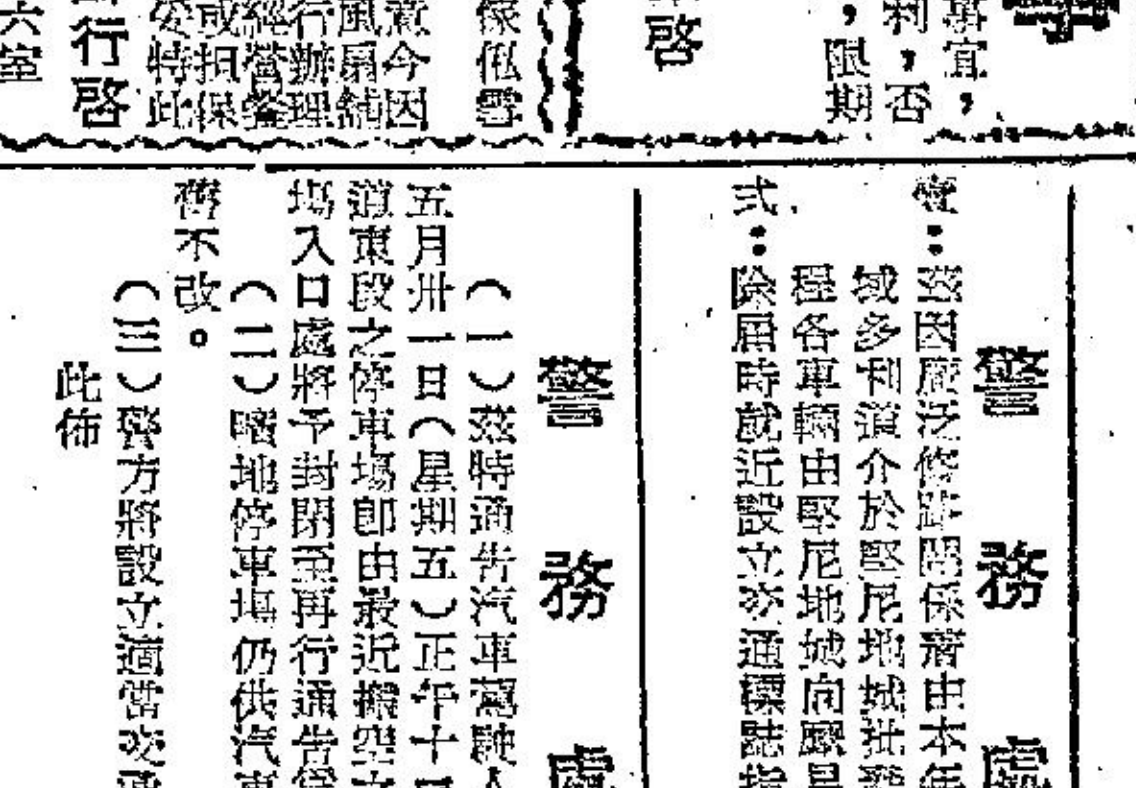 事宜，
利，否
，限期
啓
傢俬雲
煮今因
風扇舖
行辦理
經營
或担保
安特此
行啓
六室
警務處
：茲因廣泛修 關係 由本年
域多利道介於堅尼地城批發
程各車輛由堅尼地城向 
式：除屆時就近設立交通標誌指
警務處
（一）茲特通告汽車駕駛人
五月卅一日（星期五）正午十二
消東段之停車場卽由最近 空
場入口處將予封閉至再行通告
（二）瞎地停車場仍供汽車
舊不改。
（三）警方將設立適當交通
此佈